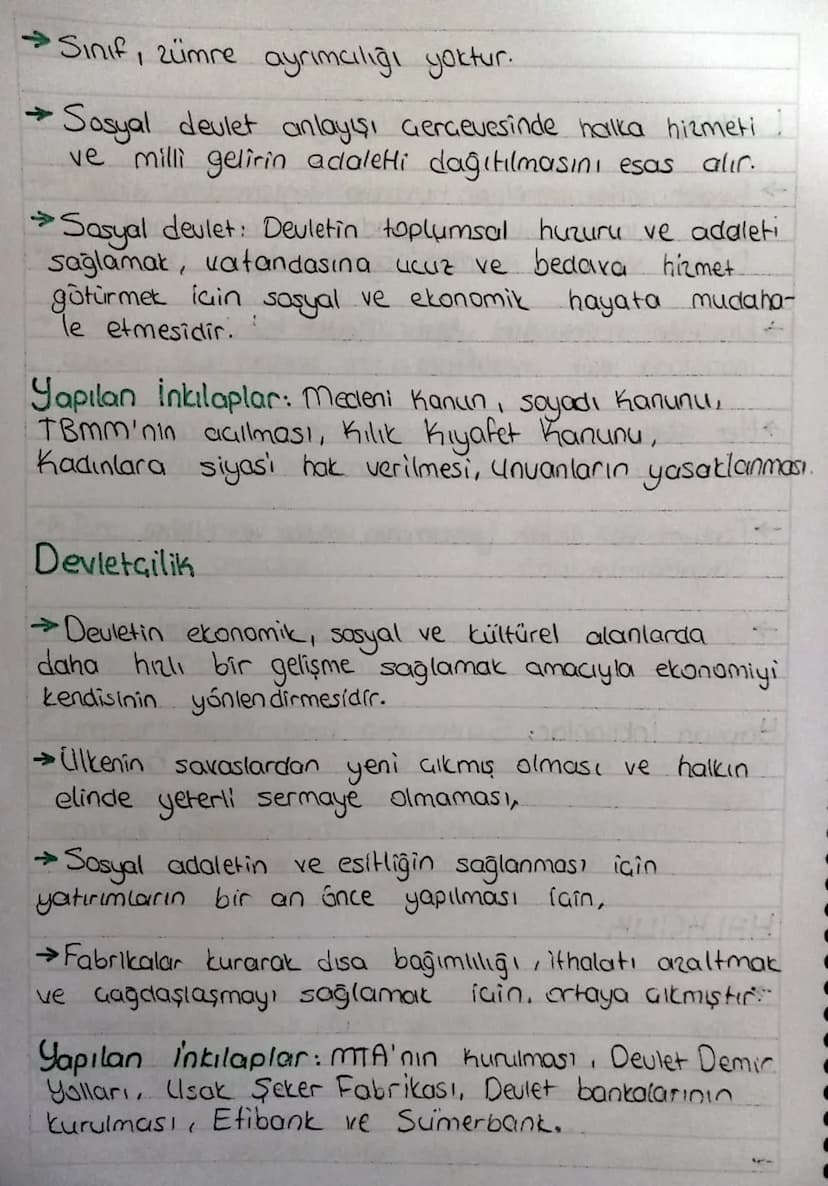 → Sınıf, zümre ayrımcılığı yoktur.
→ Sosyal devlet anlayışı çerçevesinde halka hizmeti
ve milli gelirin adaletli dağıtılmasını esas alır.
→ Sosyal devlet: Devletin toplumsal huzuru ve adaleti
sağlamak, vatandaşına ucuz ve bedava hizmet
götürmek için sosyal ve ekonomik hayata mudaha-
le etmesidir.
Yapılan İnkılaplar: Medeni Kanun, soyadı Kanunu,
TBMM'nin açılması, Kılık Kıyafet Kanunu,
Kadınlara siyasi hak verilmesi, Unvanların yasaklanması.
Devletçilik
→ Devletin ekonomik, sosyal ve kültürel alanlarda
daha hızlı bir gelişme sağlamak amacıyla ekonomiyi
kendisinin yönlendirmesidir.
→ Ülkenin savaslardan yeni çıkmış olması ve halkın
elinde yeterli sermaye olmaması,
→ Sosyal adaletin ve esitliğin sağlanması için
yatırımların bir an önce yapılması için,
→ Fabrikalar kurarak dısa bağımlılığı, ithalatı azaltmak
ve çağdaşlaşmayı sağlamak için. ortaya çıkmıştır.
Yapılan İnkılaplar: MTA'nın Kurulması, Devlet Demir
Yolları, Usak Şeker Fabrikası, Devlet bankalarının
kurulması, Etibank ve Sümerbank.